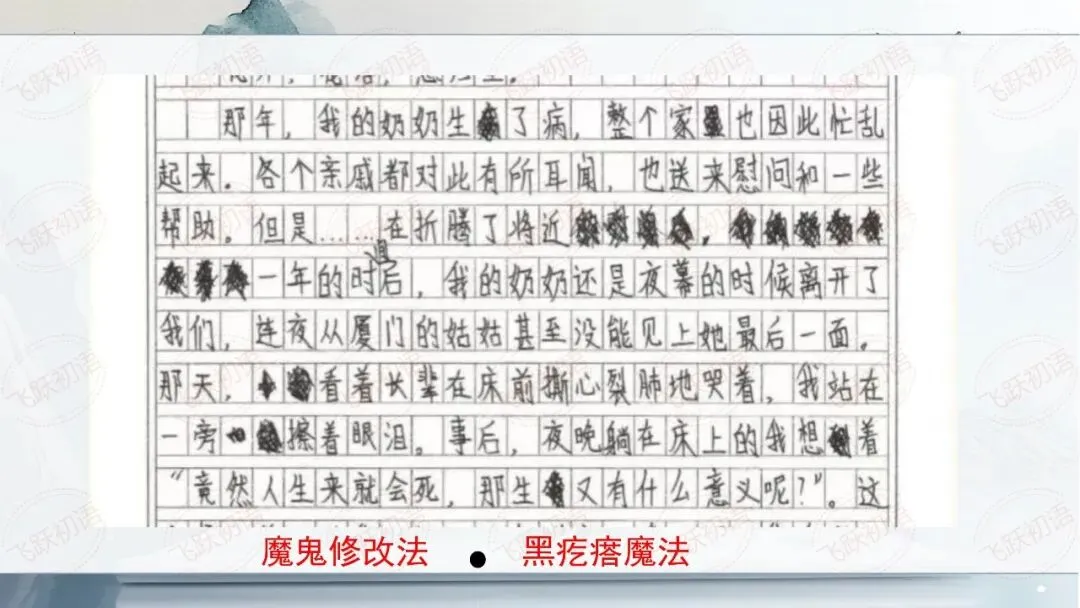 那年，我的奶奶生了病，整个家也因此忙乱
起来。各个亲戚都对此有所耳闻，也送来慰问和一些
帮助。但是……在折腾了将近
一年的时间后，我的奶奶还是夜幕的时候离开了
我们，连夜从厦门的姑姑甚至没能见上她最后一面。
那天，看着长辈在床前撕心裂肺地哭着，我站在
一旁擦着眼泪。事后，夜晚躺在床上的我想着
“竟然人生来就会死，那生又有什么意义呢？”。这
魔鬼修改法 ● 黑疙瘩魔法
飞跃初语